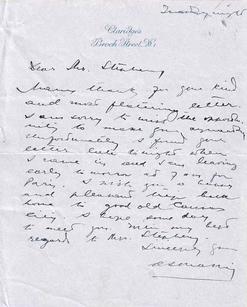 Tuesday night
Claridge's
Brook Street, W.1
Dear Mr. Stephens,
Many thanks for your kind
and most flattering letter
I am sorry to miss the opportu-
nity to make your acquaintance
Unfortunately I found your
letter late at night when
I came in and I am leaving
early tomorrow at 7 am for
Paris. I wish you a
and pleasant trip back
home to good old
City I hope some day
to meet you. With my best
regards to Mrs. Stephens
Sincerely yours